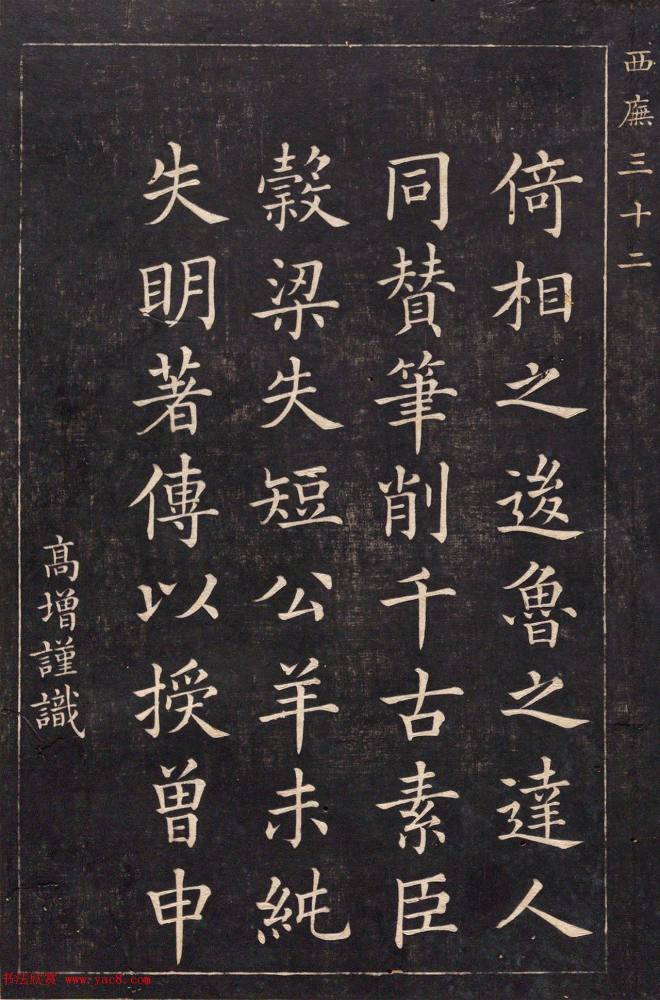 西廡三十二
倚相之後魯之達人
同賛筆削千古素臣
穀梁失短公羊未純
失明著傳以授曾申
高增謹識
书法欣赏 www.yac8.com